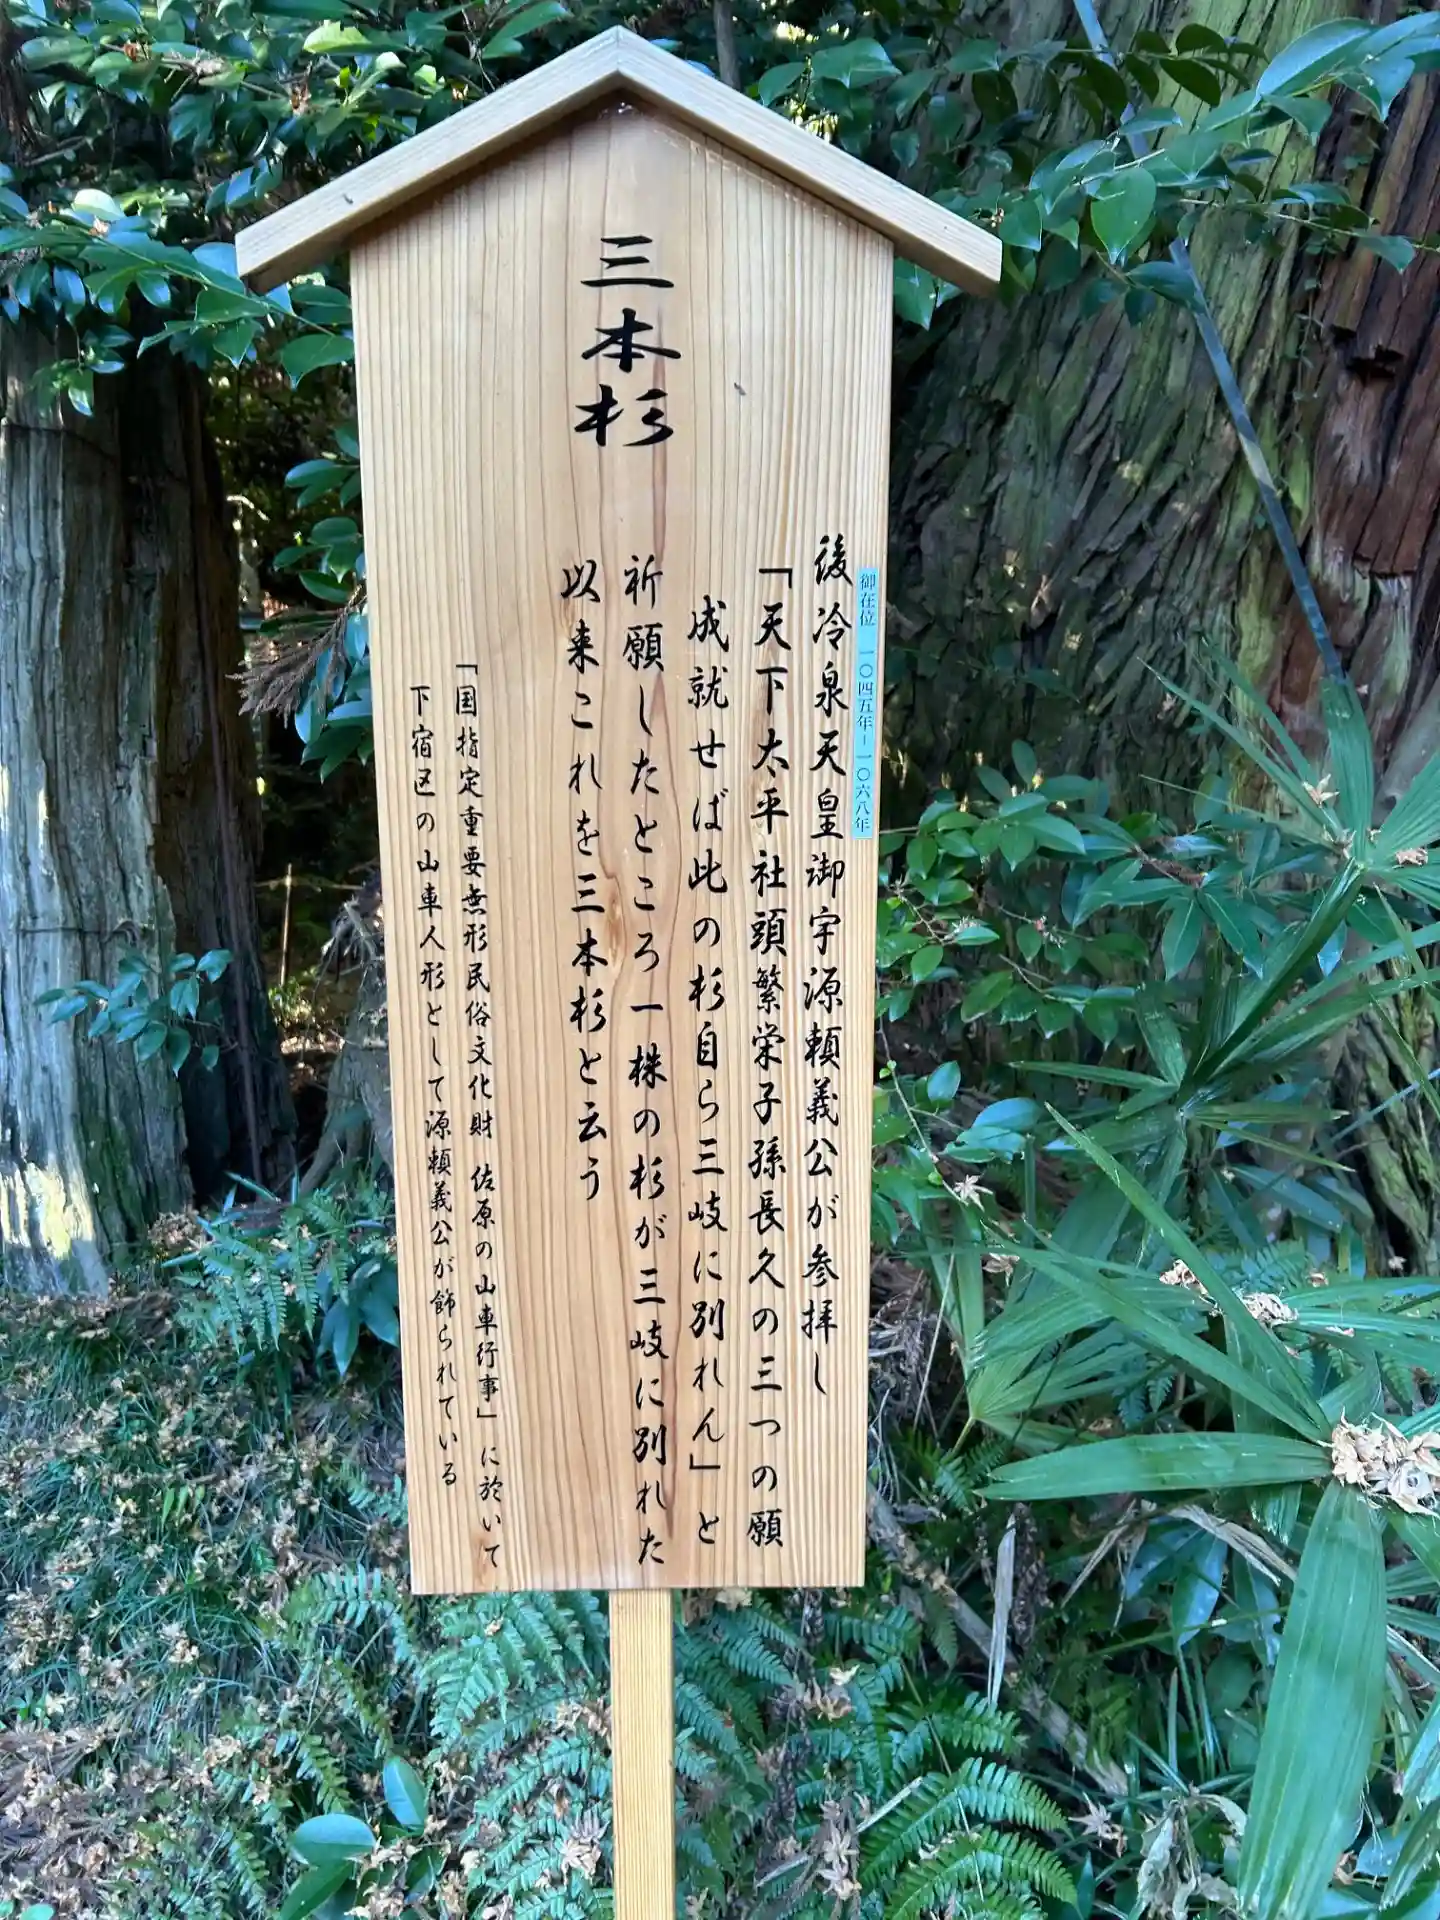 三本杉
御在位 一〇四五年－一〇六八年
後冷泉天皇御宇源頼義公が参拝し
「天下太平社頭繁栄子孫長久の三つの願
成就せば此の杉自ら三岐に別れん」と
祈願したところ一株の杉が三岐に別れた
以来これを三本杉と云う
「国指定重要無形民俗文化財 佐原の山車行事」に於いて
下宿区の山車人形として源頼義公が飾られている